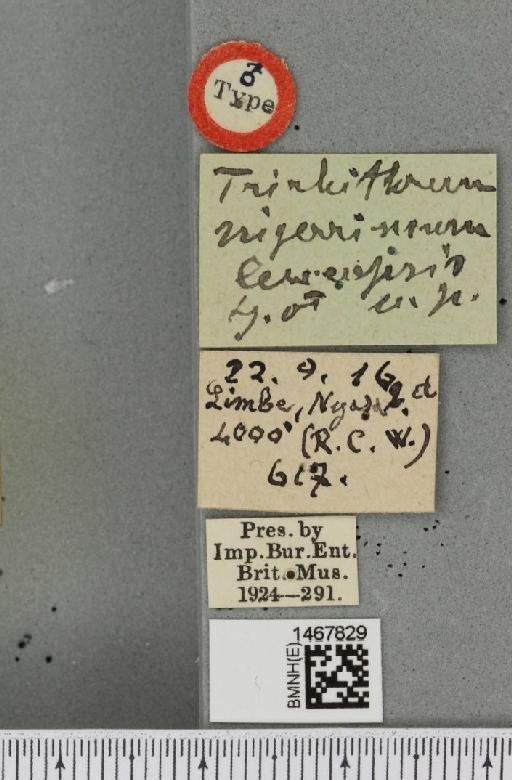 ♂
Type
Trichithorum
nigerrimum
n. sp.
22. 9. 16
Limbe, Nyasald
4000' (R. C. W.)
617.
Pres. by
Imp.Bur.Ent.
Brit.Mus.
1924—291.
1467829
BMNH(E)